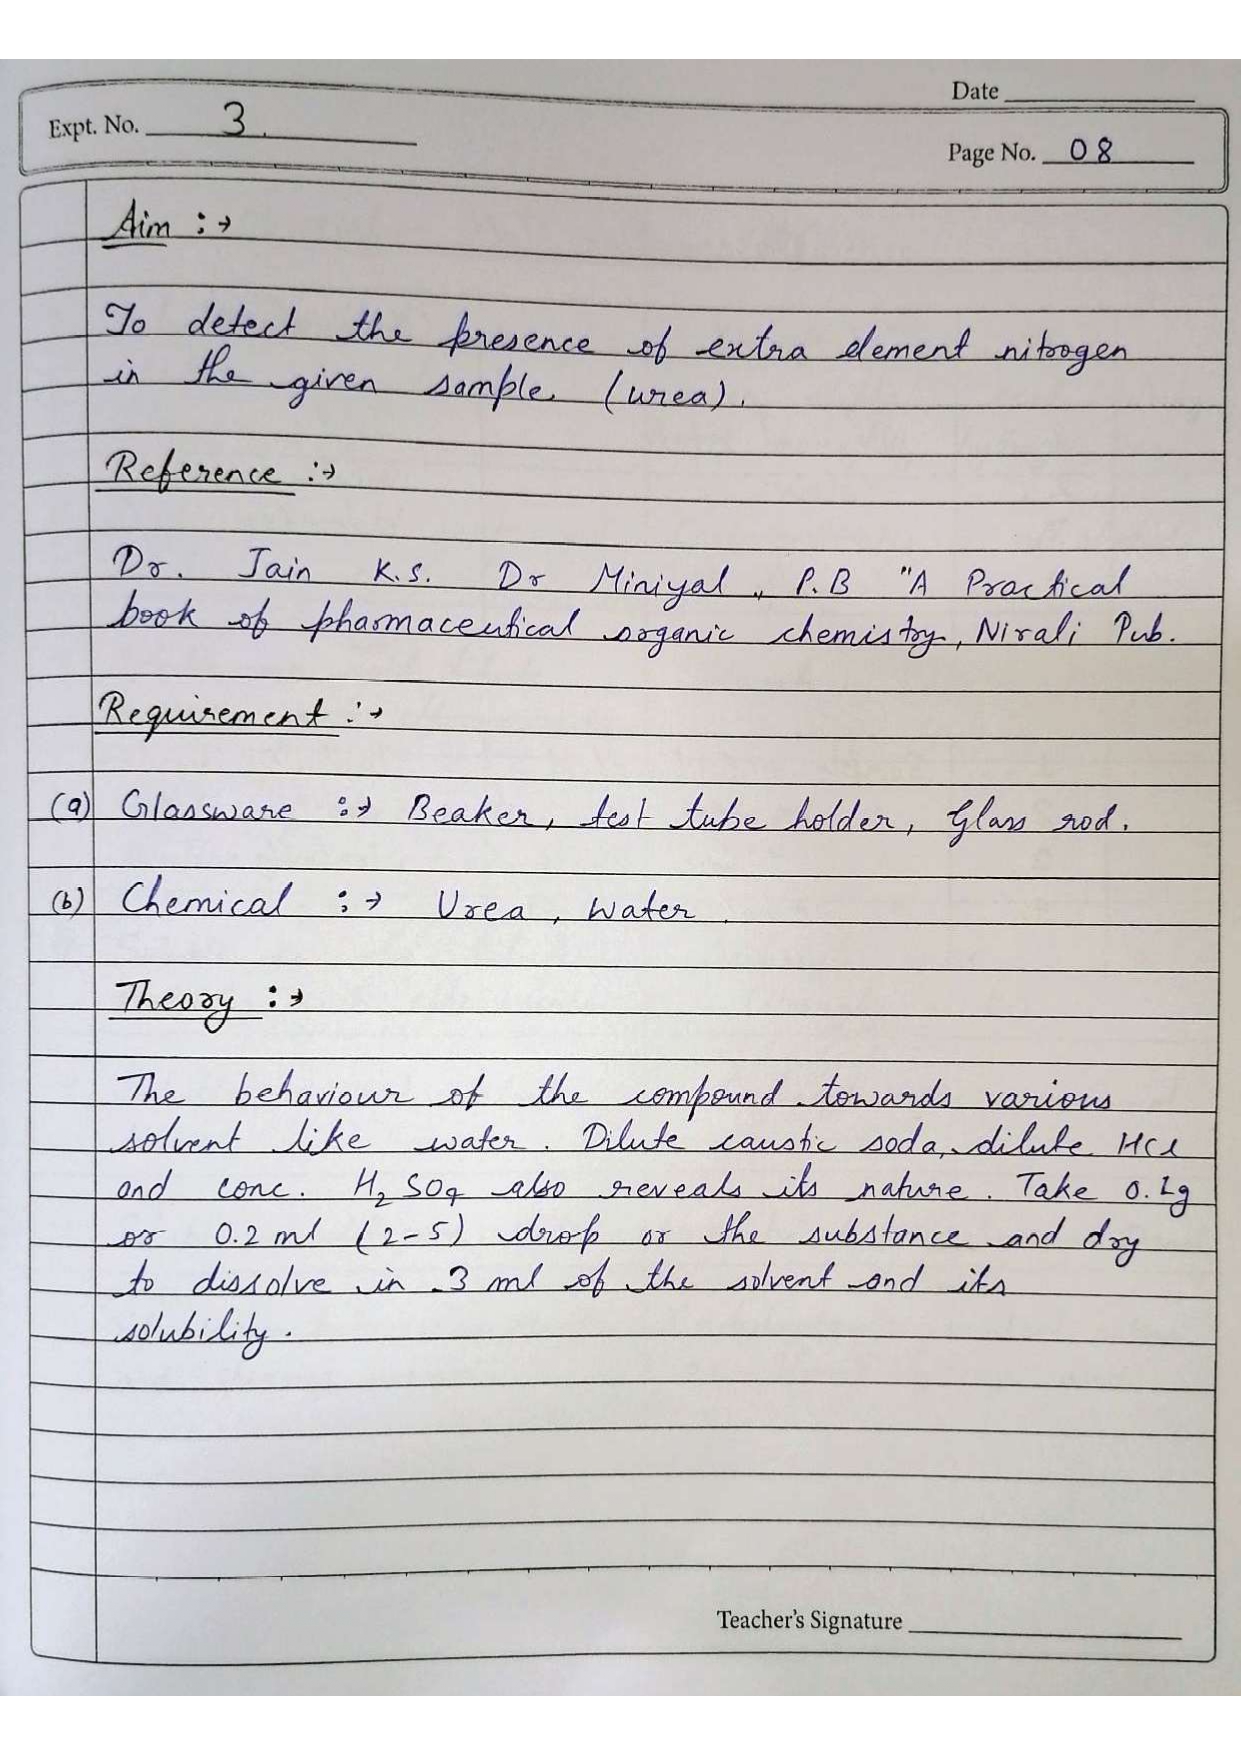 Date
Expt. No. 3.
Page No. 08
Aim :→
To detect the presence of extra element nitrogen
in the given sample. (urea).
Reference :→
Dr. Jain K.S. Dr Miniyal, P.B "A Practical
book of pharmaceutical organic chemistry, Nirali Pub.
Requirement :→
(a) Glassware :→ Beaker, test tube holder, Glass rod.
(b) Chemical :→ Urea, Water.
Theory :→
The behaviour of the compound towards various
solvent like water. Dilute caustic soda, dilute HCl
and conc. H₂SO₄ also reveals its nature. Take 0.1g
or 0.2 ml (2-5) drop or the substance and dry
to dissolve in 3 ml of the solvent and its
solubility.
Teacher's Signature